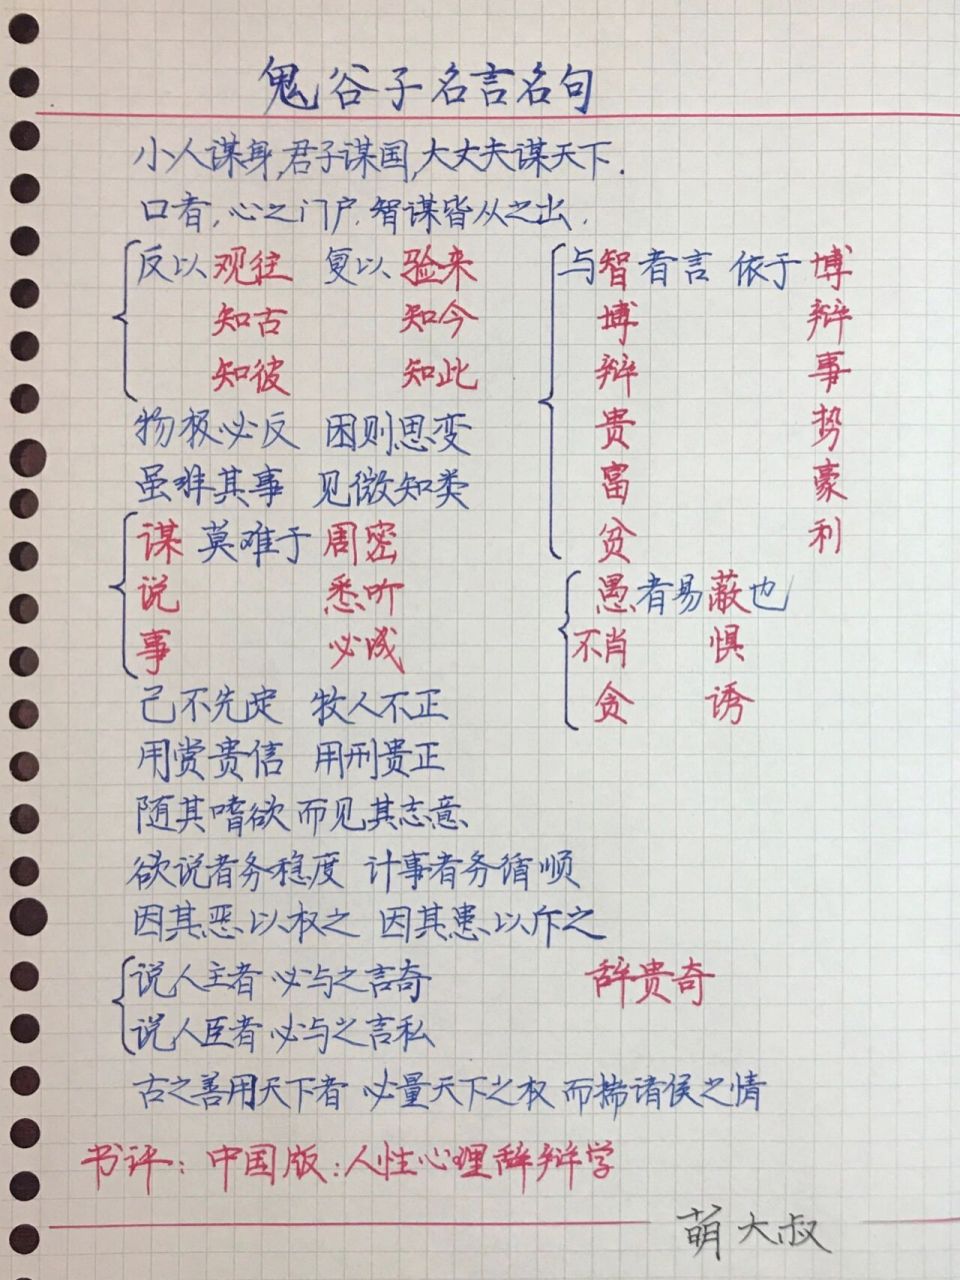 鬼谷子名言名句
小人谋身,君子谋国,大丈夫谋天下.
口者,心之门户.智谋皆从之出.
反以观往 复以验来
知古 知今
知彼 知此
物极必反 困则思变
虽非其事 见微知类
谋 莫难于 周密
说 悉听
事 必成
己不先定 牧人不正
用赏贵信 用刑贵正
随其嗜欲 而见其志意
欲说者务稳度 计事者务循顺
因其恶以权之 因其患以斥之
说人主者 必与之言奇
说人臣者 必与之言私
与智者言 依于博
博 辩
辩 事
贵 势
富 豪
贫 利
愚者易蔽也
不肖 惧
贪 诱
辞贵奇
古之善用天下者 必量天下之权 而揣诸侯之情
书评:中国版:人性心理辞辩学
萌大叔